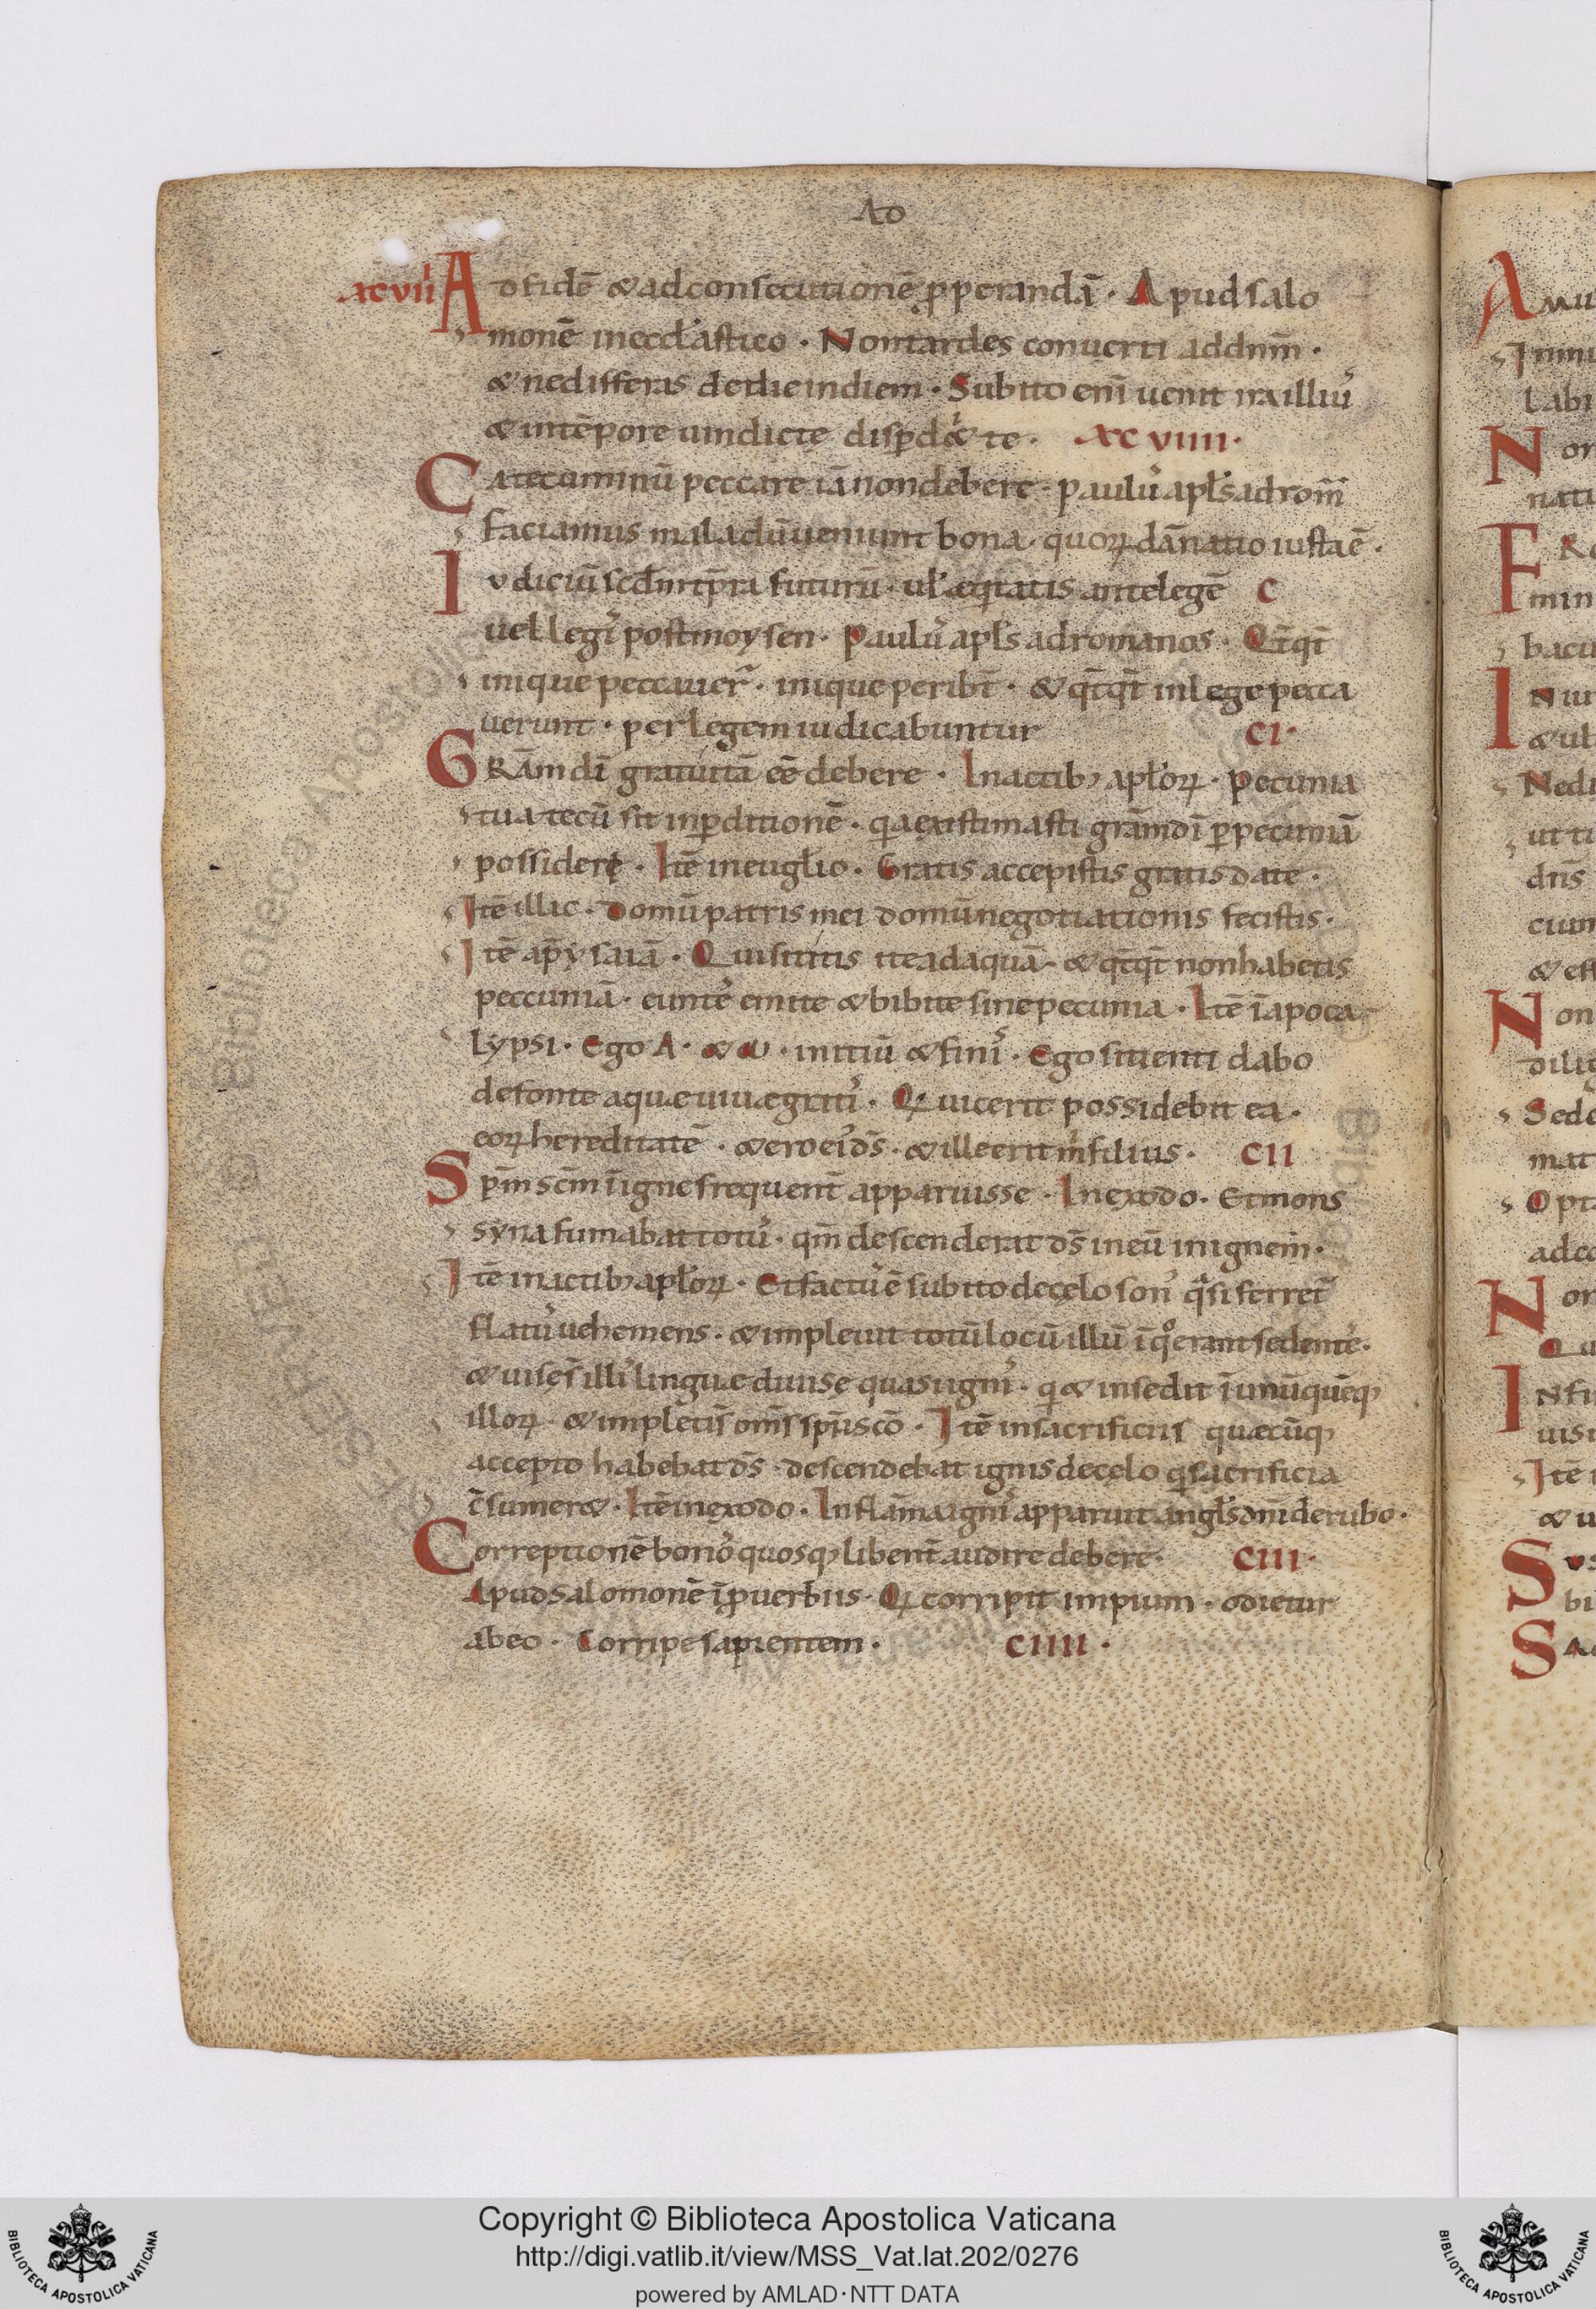 AD
xcviii Ad fidē & ad consecutionē ꝓperandā · Apud salo
monē in eccl'astico · Non tardes conuerti ad dnm̄ ·
& ne differas de die in diem · Subito enī uenit ira illiuˀ
& in tēpore uindictę disꝑd& te · xcviiii ·
Catecuminū peccare iā non debere · pauluˀ apl's ad rom̄
faciamus mala dū ueniunt bona · quoꝝ dānatio iusta ē ·
Iudiciū scd'm tp̄ra futurū · ul' aeq'tatis ante legē c
uel legiˀ post moysen · Pauluˀ apl's ad romanos · Qt̄qt̄
inique peccauer̄ · inique peribt̄ · & qt̄qt̄ in lege pecca
uerunt · per legem iudicabuntur ci ·
Grām dī gratuitā eē debere · In actib; apl'oꝝ · Pecunia
tua tecū sit in ꝑditionē · q'a existimasti grām dī ꝑ pecuniā
possidere · Itē in eugl'io · Gratis accepistis gratis date ·
Itē illic · Domū patris mei domū negotiationis fecistis ·
Itē ap̄ ysaiā · Qui sititis ite ad aquā · & qt̄qt̄ non habetis
peccuniā · eunteˀ emite & bibite sine pecunia · Itē ī apoca
lypsi · Ego A · & ω · initiū & finiˢ · Ego sitienti dabo
de fonte aquae uiuae gratiˀ · Qui uicerit possidebit ea ·
eoꝝ hereditatē · & ero eiˀ ds̄ · & ille erit m' filius · cii
Spm̄ scm̄ ī igne frequent̄ apparuisse · In exodo · Et mons
syna fumabat totuˀ · qm̄ descenderat ds̄ in eū in ignem ·
Itē in actib; apl'oꝝ · Et factū ē subito de cęlo sonˀ q'si ferret̄
flatuˀ uehemens · & impleuit totū locū illū ī qͦ erant sedenteˀ ·
& uise s̄ illiˀ linguae diuisę quasi igniˀ · qi & insedit ī unūquēq;
illoꝝ · & impleti s̄ om̄s spū scō · Itē in sacrificiis quaecūq;
accepto habebat ds̄ · descendebat ignis de cęlo q' sacrificia
c̄sumer& · Itē in exodo · In flāma igniˢ apparuit angl's dnī de rubo ·
Correptionē bonoˀ quosq; libent̄ audire debere · ciii ·
Apud salomonē ī ꝓuerbiis · Qi corripit impium · odietur
ab eo · Corripe sapientem · ciiii ·
Copyright © Biblioteca Apostolica Vaticana
http://digi.vatlib.it/view/MSS_Vat.lat.202/0276
powered by AMLAD·NTT DATA